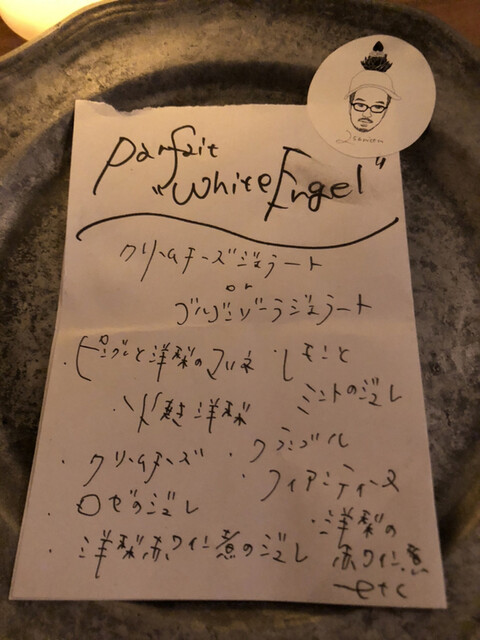 parfait
"White Engel"
クリームチーズジェラート
or
ゴルゴンゾーラジェラート
・洋梨のマリネ
・レモンと
ミントのジュレ
焼き洋梨
・クリームチーズ
・クランブル
・フィアンティーヌ
・ロゼのジュレ
・洋梨赤ワイン煮のジュレ
・洋梨の
赤ワイン煮
etc